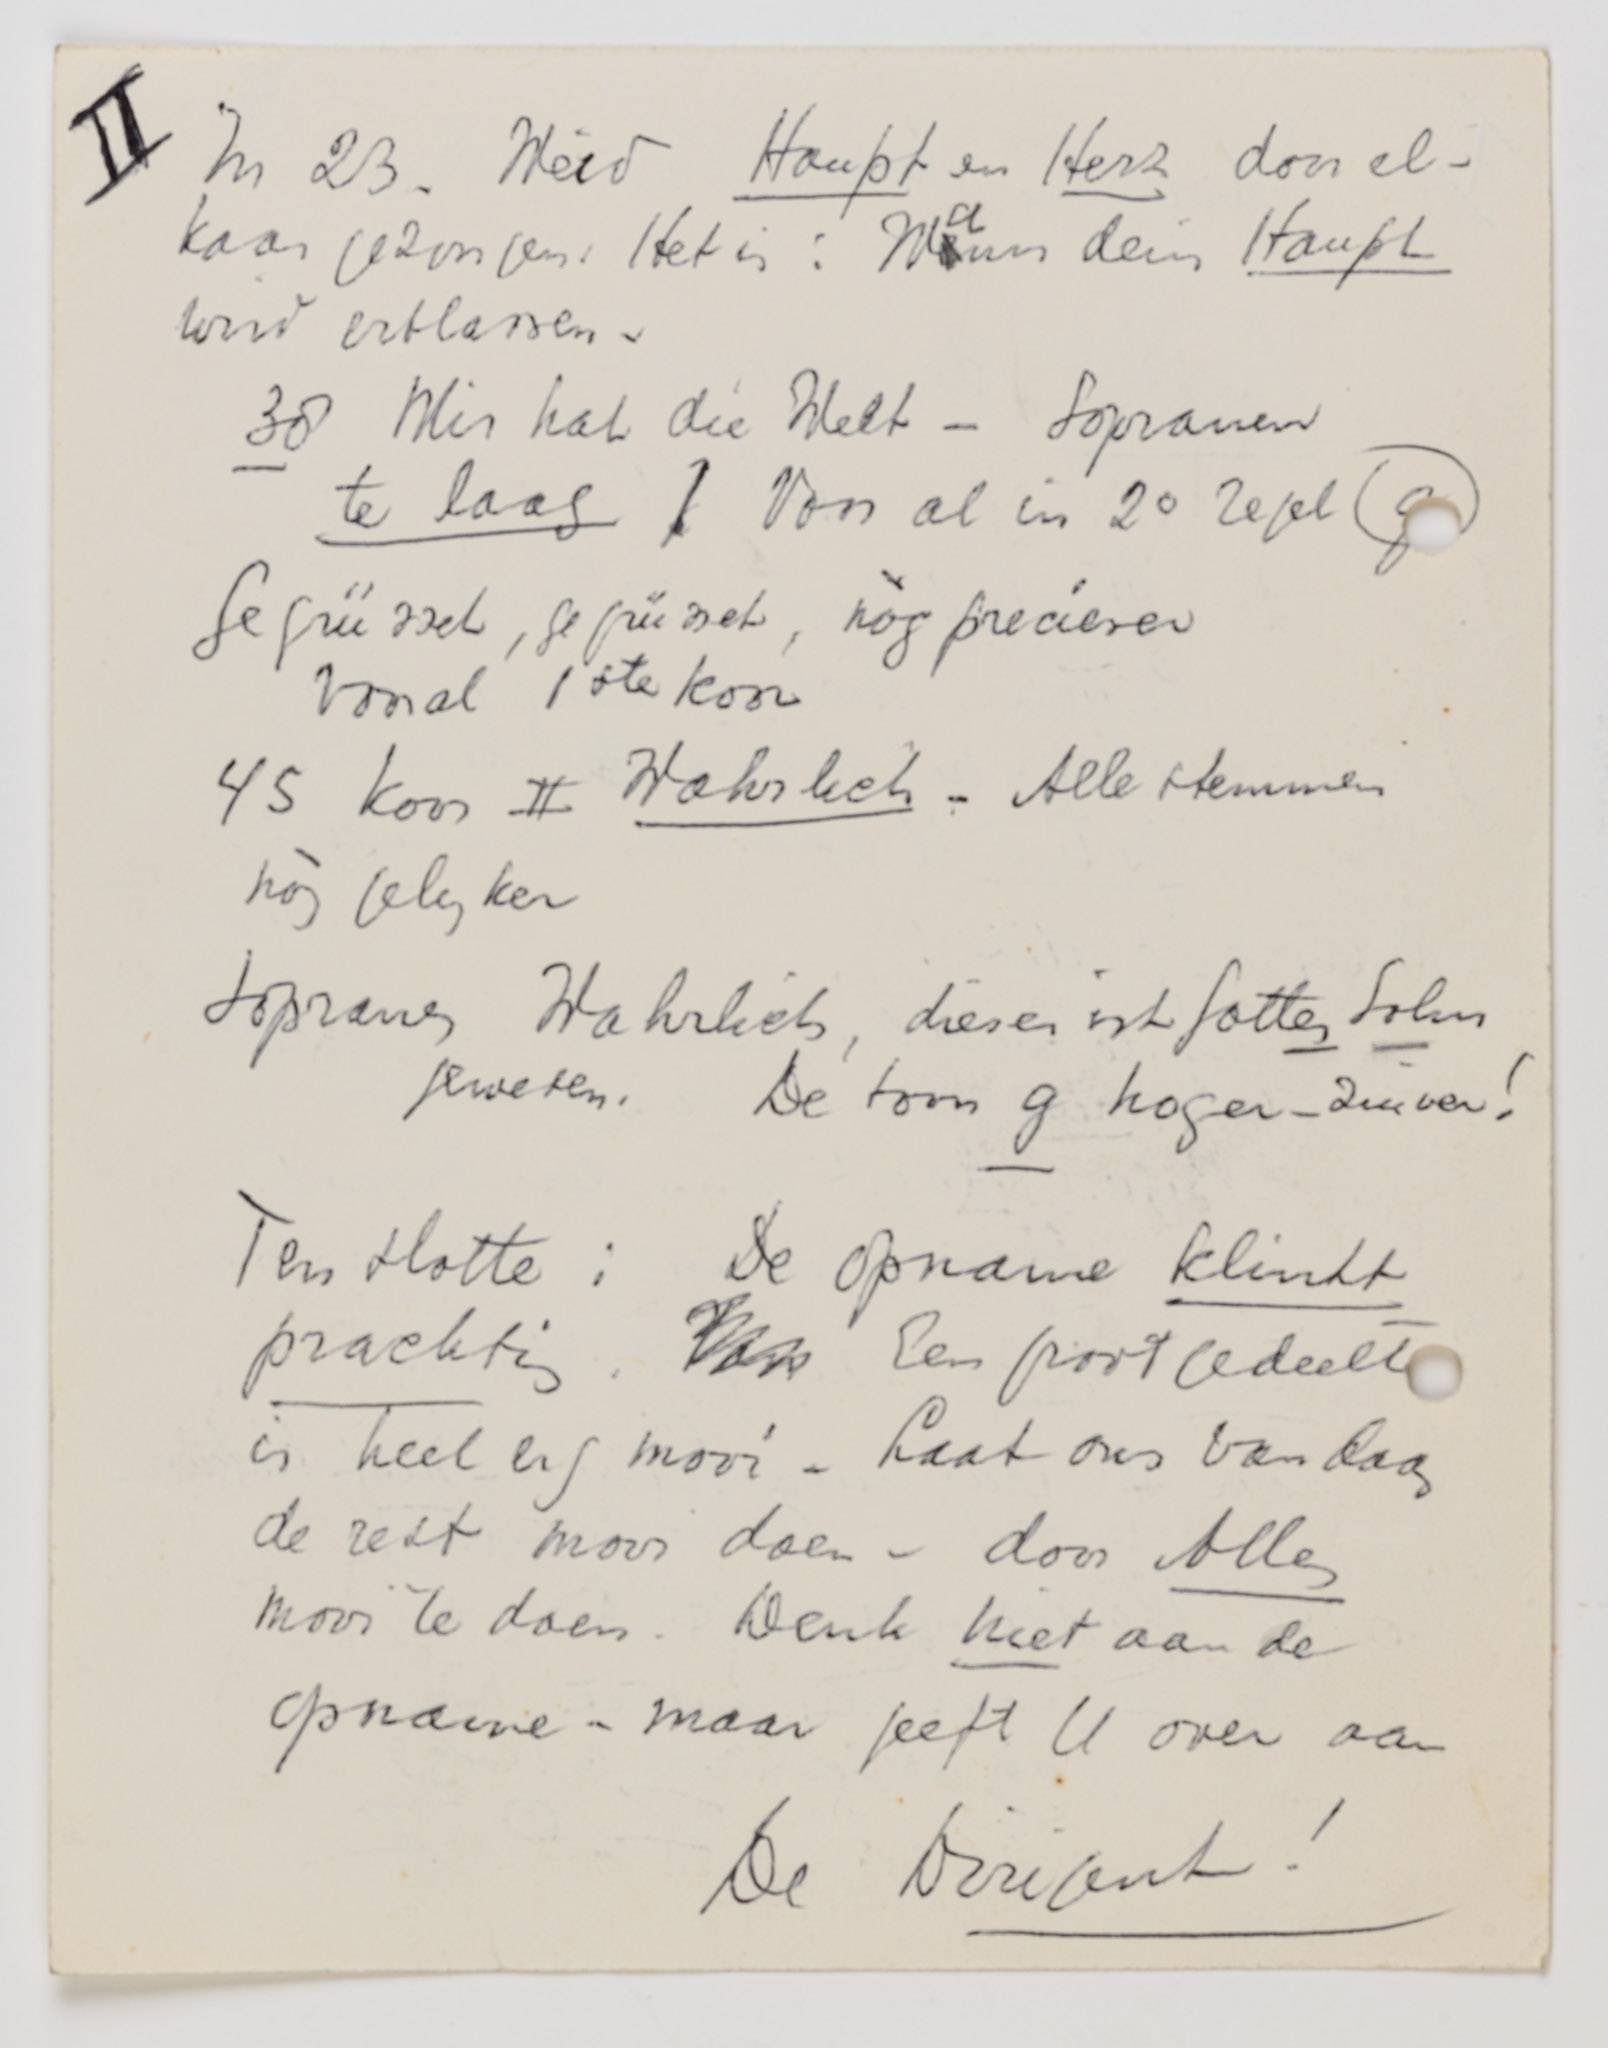 II In 23. Werd Haupt en Herz door el-
kaar gezongen. Het is: Wann dein Haupt
wird erblassen.
38 Mir hat die Welt - Sopranen
te laag ! Voor al in 2e regel (g)
Gegrüsset, gegrüsset, nòg preciezer
vooral 1ste koor
45 Koor II Wahrlich - Alle stemmen
nòg gelyker
Sopranen Wahrlich, dieser ist Gottes Sohn
gewesen. De toon g hoger - zuiver!
Ten slotte: De opname klinkt
prachtig. Een groot gedeelte
is heel erg mooi - Laat ons vandaag
de rest mooi doen - door Alles
mooi te doen. Denk niet aan de
opname - maar geeft U over aan
De Dirigent!